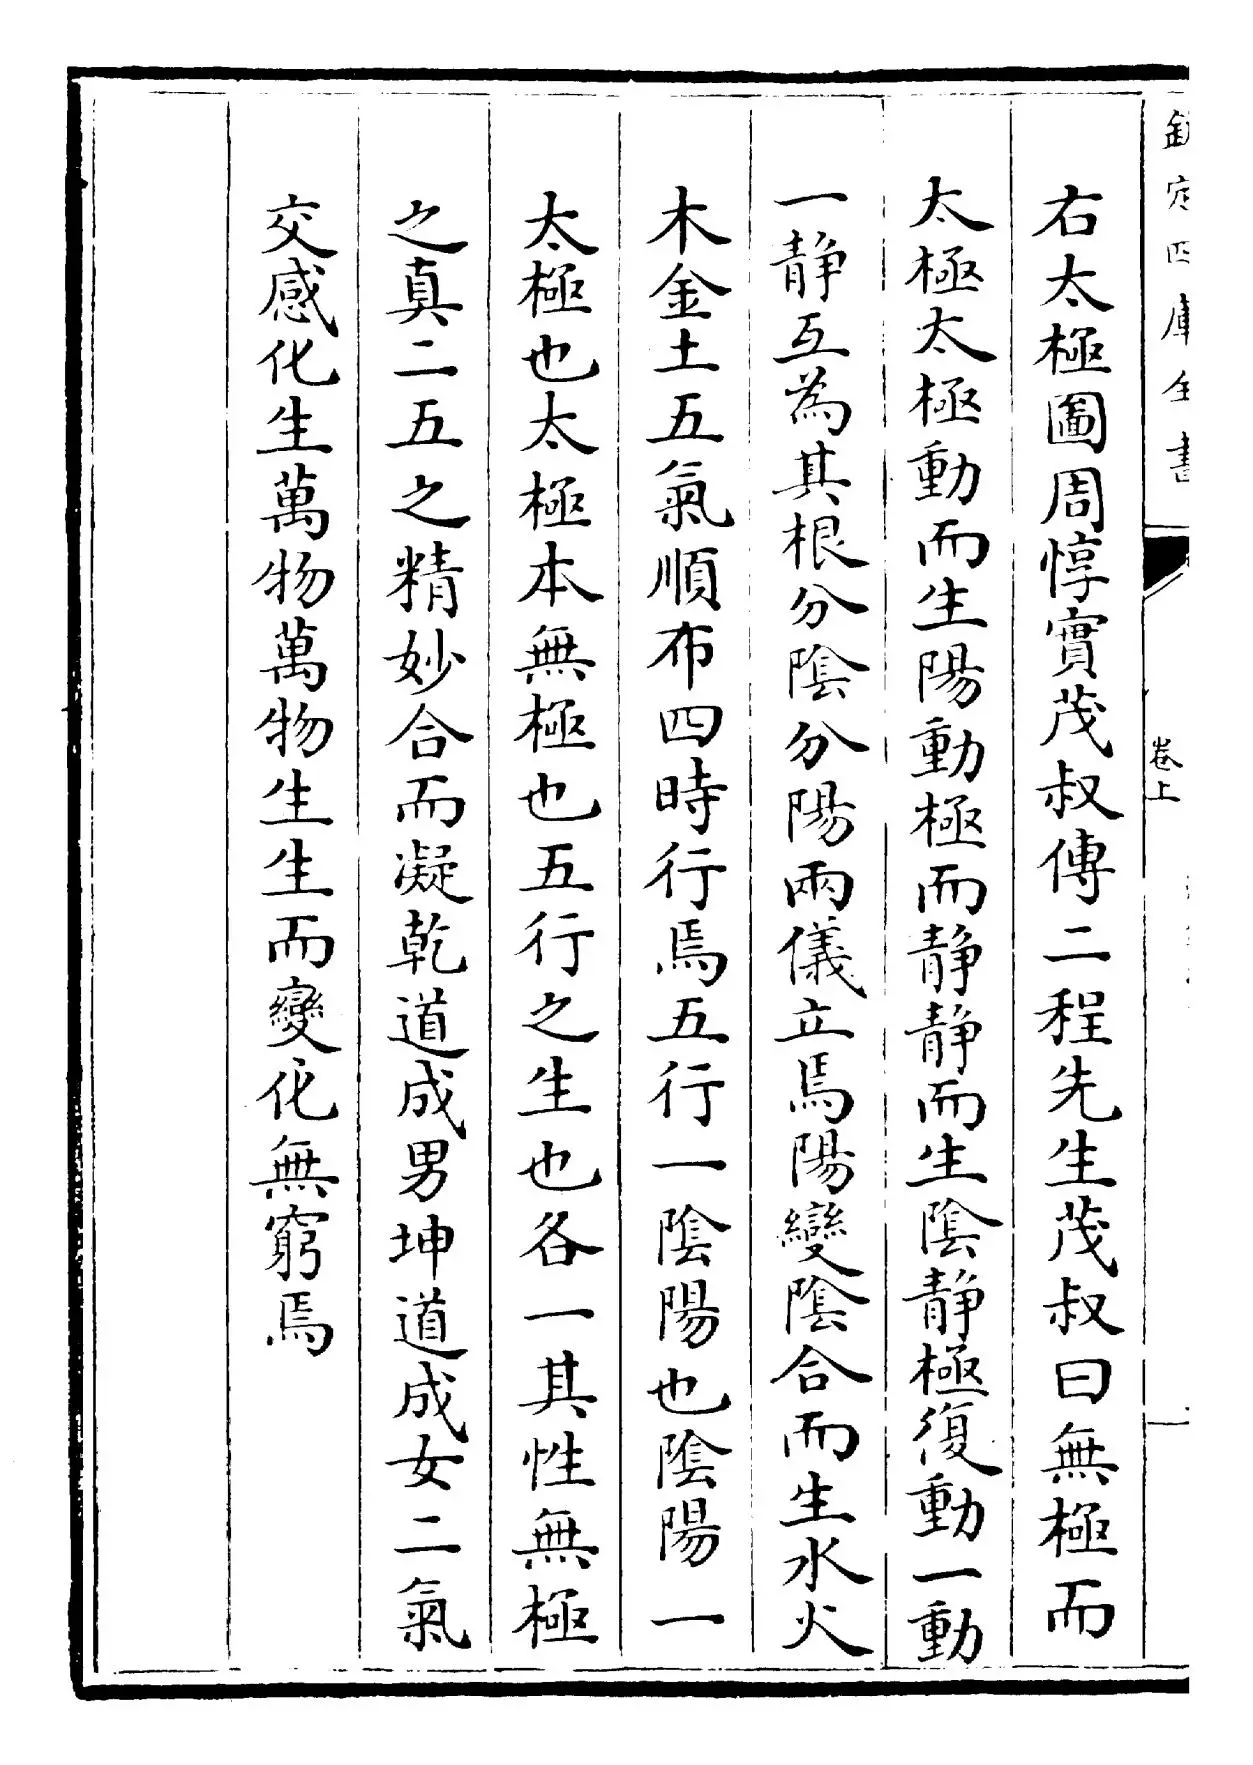 欽定四庫全書
卷上
右太極圖周惇實茂叔傳二程先生茂叔曰無極而
太極太極動而生陽動極而静静而生陰静極復動一動
一静互為其根分陰分陽兩儀立焉陽變陰合而生水火
木金土五氣順布四時行焉五行一陰陽也陰陽一
太極也太極本無極也五行之生也各一其性無極
之真二五之精妙合而凝乾道成男坤道成女二氣
交感化生萬物萬物生生而變化無窮焉